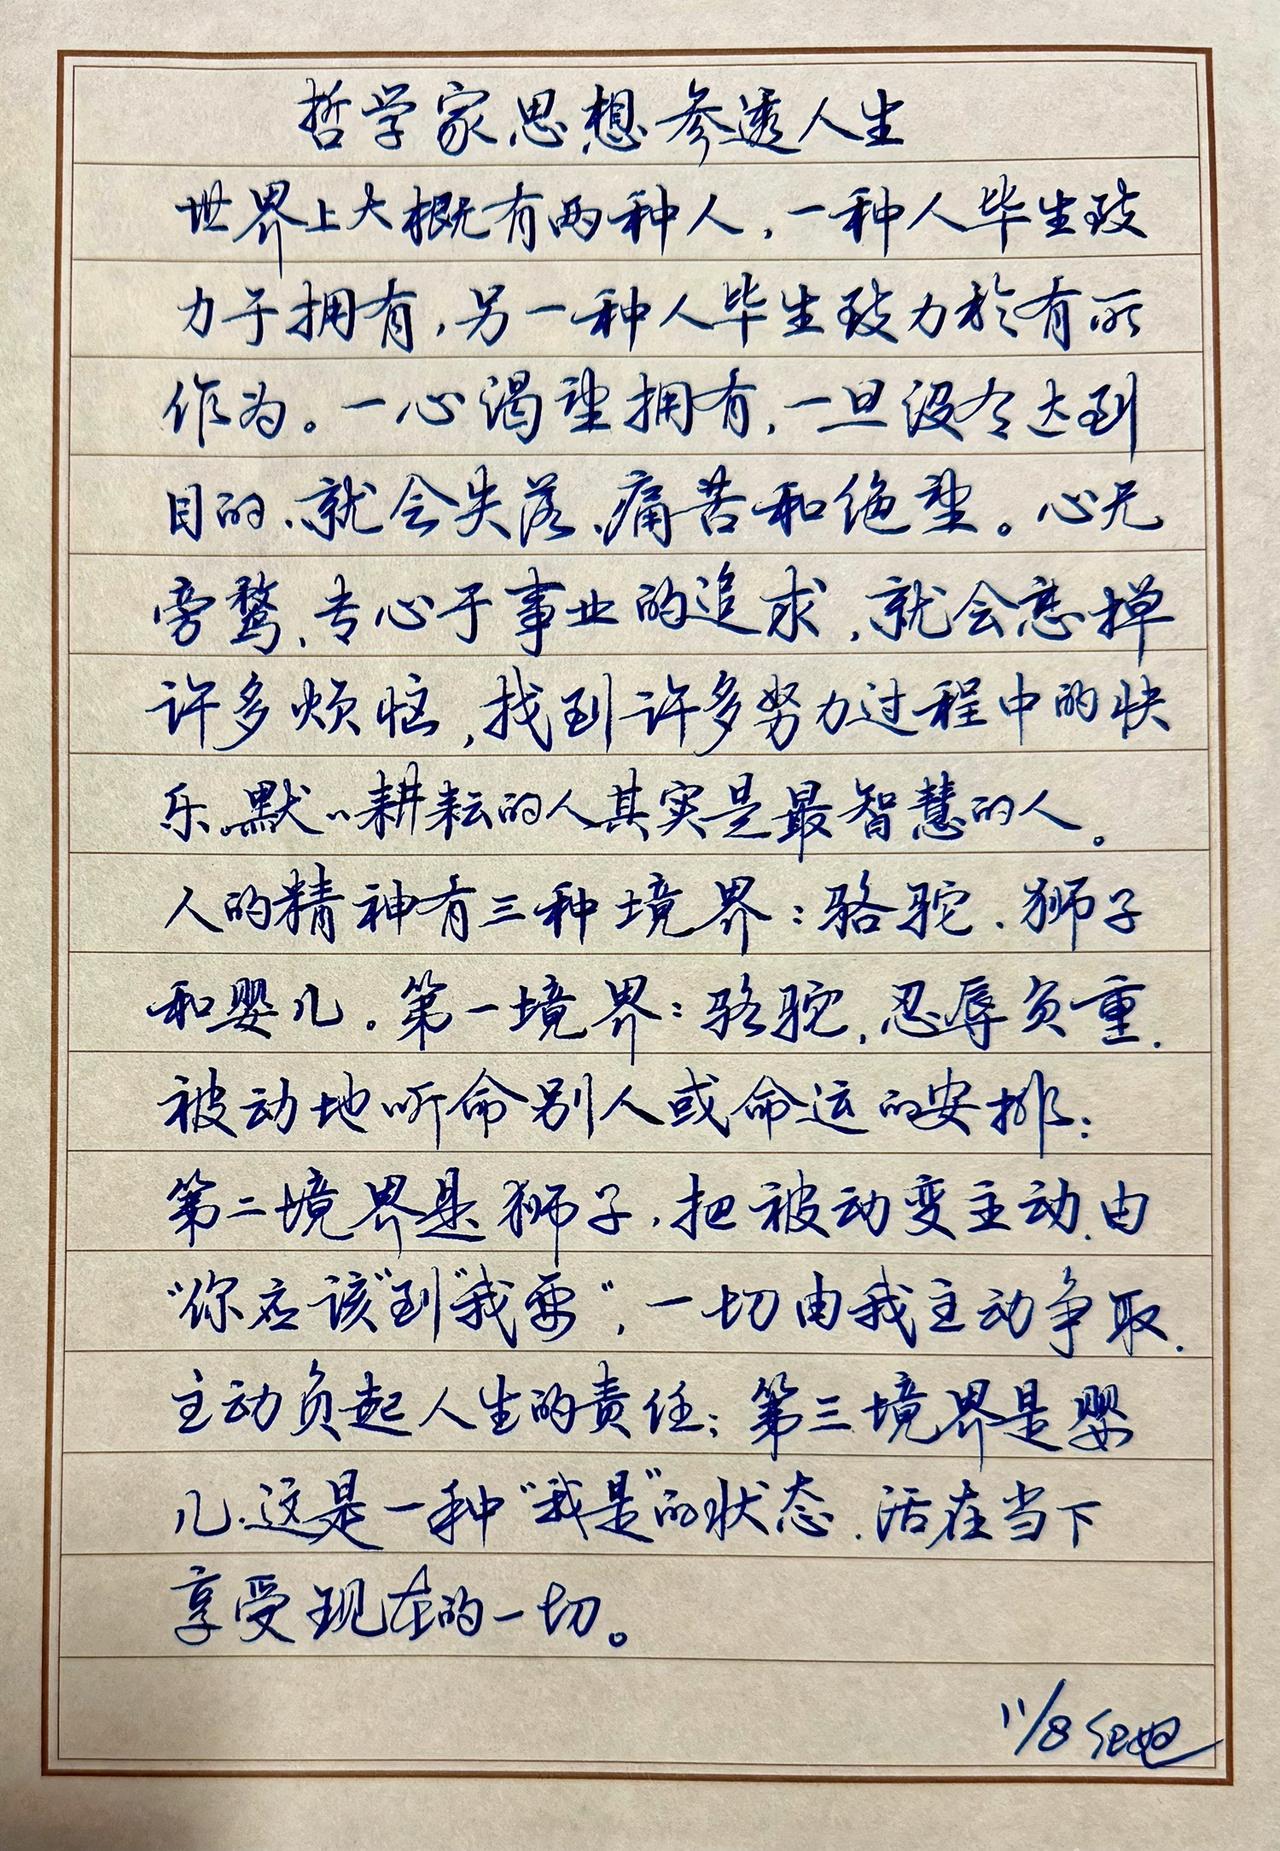 哲学家思想参透人生
世界上大概有两种人，一种人毕生致
力于拥有，另一种人毕生致力於有所
作为。一心渴望拥有，一旦没有达到
目的，就会失落、痛苦和绝望。心无
旁骛，专心于事业的追求，就会忘掉
许多烦恼，找到许多努力过程中的快
乐。默〃耕耘的人其实是最智慧的人。
人的精神有三种境界：骆驼、狮子
和婴儿。第一境界：骆驼，忍辱负重，
被动地听命别人或命运的安排；
第二境界是狮子，把被动变主动，由
“你应该”到“我要”，一切由我主动争取，
主动负起人生的责任；第三境界是婴
儿，这是一种“我是”的状态，活在当下
享受现在的一切。
11/8